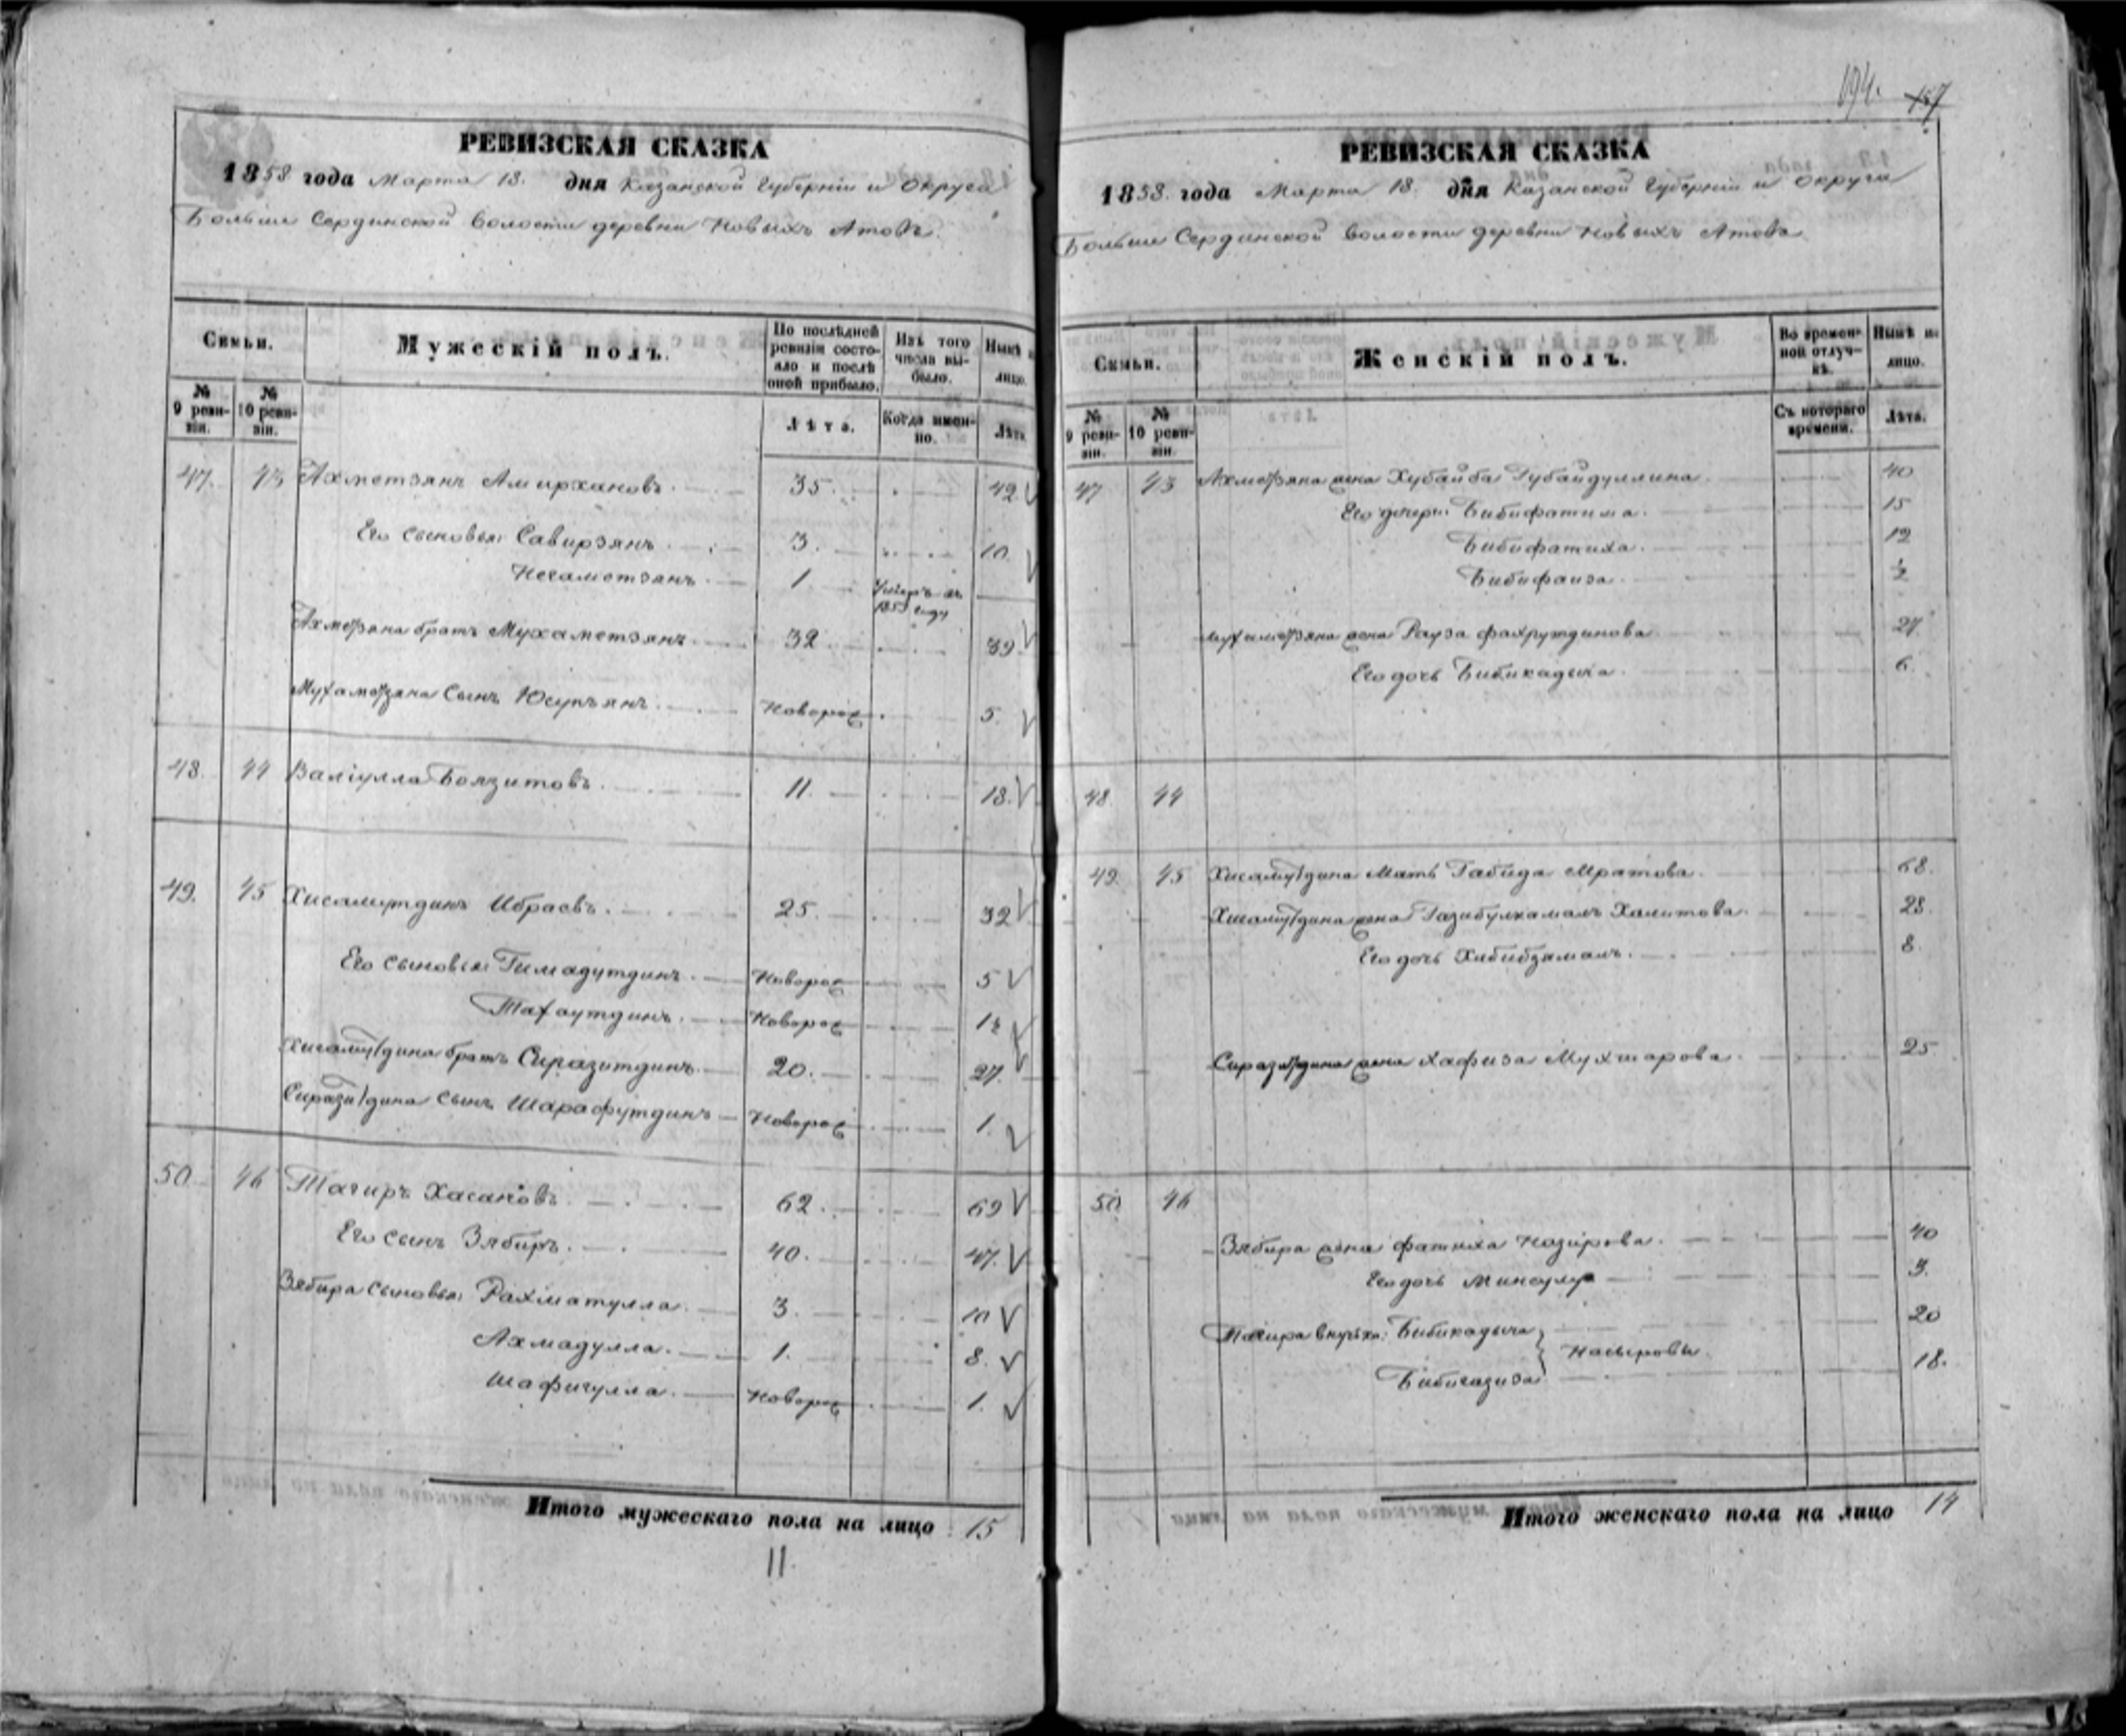 194. 157
РЕВИЗСКАЯ СКАЗКА
1858 года Марта 18. дня Казанской Губерніи и Округа
Больше Сердинской волости деревни Новыхъ Атовъ.
Семьи. Мужескій полъ. По послѣдней ревизіи состояло и послѣ оной прибыло. Изъ того числа выбыло. Нынѣ лицо.
№ 9 ревизіи. № 10 ревизіи. Лѣта. Когда именно. Лѣта
47. 43 Ахметзянъ Амирхановъ. 35. 42
Его сыновья: Савирзянъ 3. 10.
Негаметзянъ 1 Умеръ въ 1853 году
Ахметзяна братъ Мухаметзянъ 32 39
Мухаметзяна сынъ Юсупзянъ Новорож 5.
48. 44 Валіулла Боязитовъ. 11. 18.
49. 45 Хисамутдинъ Ибраевъ. 25. 32
Его сыновья: Гимадутдинъ. Новорож 5
Тахаутдинъ. Новорож 1½
Хисамутдина братъ Сиразитдинъ 20. 27.
Сиразитдина сынъ Шарафутдинъ Новорож 1.
50. 46 Тагиръ Хасановъ 62. 69
Его сынъ Зябиръ. 40. 47.
Зябира сыновья: Рахматулла 3. 10
Ахмадулла. 1. 8.
Шафигулла. Новорож 1.
Итого мужескаго пола на лицо 15
11.
РЕВИЗСКАЯ СКАЗКА
1858. года Марта 18. дня Казанской Губерніи и Округа
Больше Сердинской волости деревни Новыхъ Атовъ
Семьи. Женскій полъ. Во временной отлучкѣ. Нынѣ на лицо.
№ 9 ревизіи. № 10 ревизіи. Съ котораго времени. Лѣта.
47 43 Ахметзяна жена Хубайба Губайдуллина 40
Его дочери: Бибифатима. 15
Бибифатиха. 12
Бибифаиза. ½
Мухаметзяна жена Рауза Фахрутдинова 27
Его дочь Бибикадыча 6.
48. 44
49. 45 Хисамутдина мать Габида Мратова 68.
Хисамутдина жена Газибулкамалъ Халитова. 28.
Его дочь Хябибзямалъ. 8.
Сиразитдина жена Хафиза Мухтарова 25
50 46
Зябира жена Фатиха Назирова. 40
Его дочь Минсулу 3.
Тагира внучки: Бибикадыча 20
Насыровы.
Бибигазиза 18.
Итого женскаго пола на лицо 14